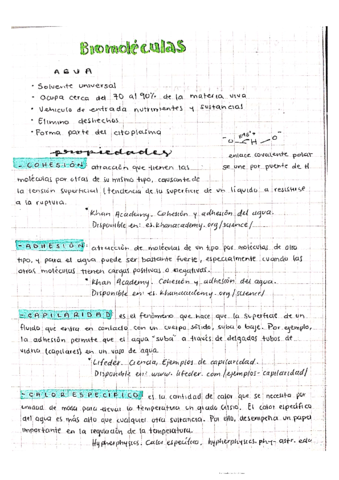 Biomoléculas
AGUA
• Solvente universal
• Ocupa cerca del 70 al 90% de la materia viva
• Vehículo de entrada nutrimentos y sustancias
• Elimina deshechos
• Forma parte del citoplasma
enlace covalente polar
se une por puente de H
propiedades
- COHESIÓN: atracción que tienen las
moléculas por otras de su mismo tipo, causante de
la tensión superficial (tendencia de la superficie de un líquido a resistirse
a la ruptura.
* Khan Academy. Cohesión y adhesión del agua.
Disponible en: es.khanacademy.org/science/
- ADHESIÓN: atracción de moléculas de un tipo por moléculas de otro
tipo, y para el agua puede ser bastante fuerte, especialmente cuando las
otras moléculas tienen cargas positivas o negativas.
* Khan Academy. Cohesión y adhesión del agua.
Disponible en: es.khanacademy.org/science/
- CAPILARIDAD: es el fenómeno que hace que la superficie de un
fluido que entra en contacto con un cuerpo sólido, suba o baje. Por ejemplo,
la adhesión permite que el agua "suba" a través de delgados tubos de
vidrio (capilares) en un vaso de agua.
* Lifeder. Ciencia, Ejemplos de capilaridad.
Disponible en: www.lifeder.com/ejemplos-capilaridad/
- CALOR ESPECÍFICO: es la cantidad de calor que se necesita por
unidad de masa para elevar la temperatura un grado Celsius. El calor específico
del agua es más alto que cualquier otra sustancia. Por ello, desempeña un papel
importante en la regulación de la temperatura.
Hyperphysics. Calor específico, hyperphysics.phy-astr.edu